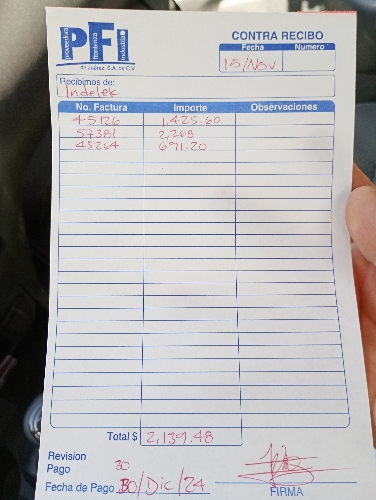 PFI
Proveedora Fronteriza Industrial
de Juárez S.A. de C.V.
CONTRA RECIBO
Fecha Numero
15/Nov
Recibimos de:
Indelek
No. Factura Importe Observaciones
45126 1,425.60
57381 2,268
45264 691.20
Total $ 2,139.48
Revision 30
Pago
Fecha de Pago 30/Dic/24
FIRMA